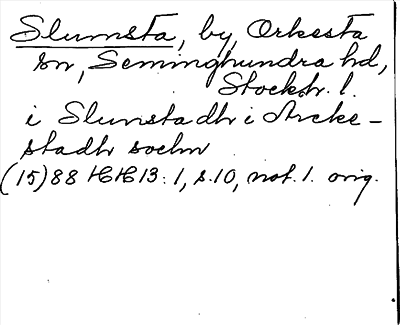 Slumsta, by, Orkesta
sn, Seminghundra hd,
Stockh. l.
i Slunstadh i Arche-
stadh sochn
(15)88 HH 13:1, s. 10, not. 1. orig.